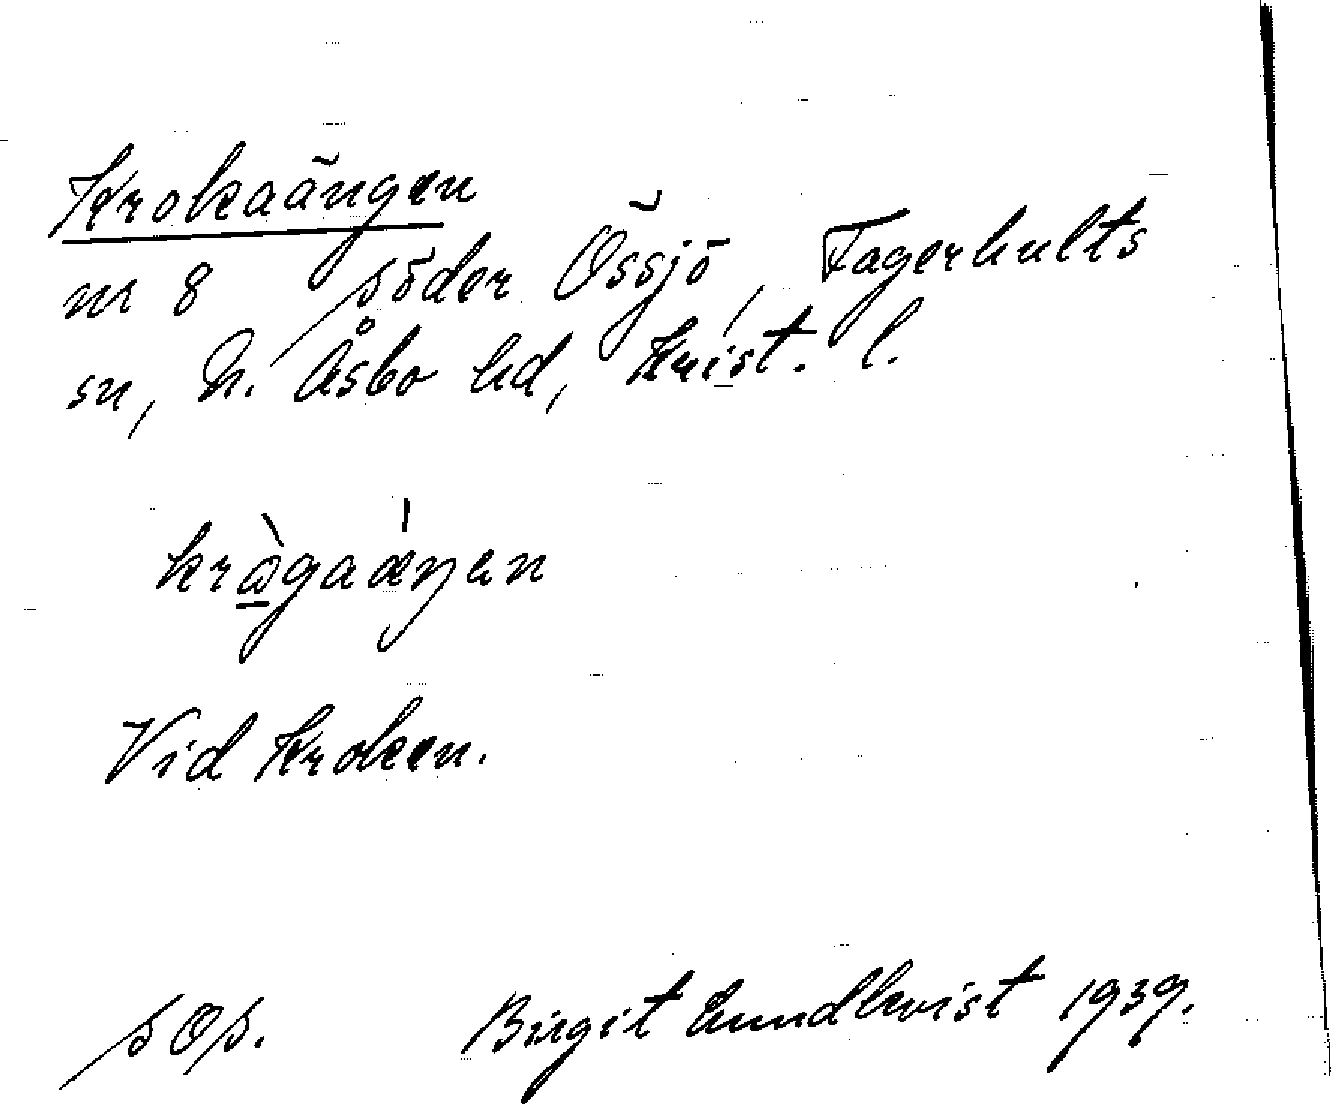 Krokaängen
nr 8 Söder Össjö, Fagerhults
sn, N. Åsbo hd, Krist. l.
kràgaáŋen
Vid Kroken.
SOS. Birgit Lundkvist 1939.